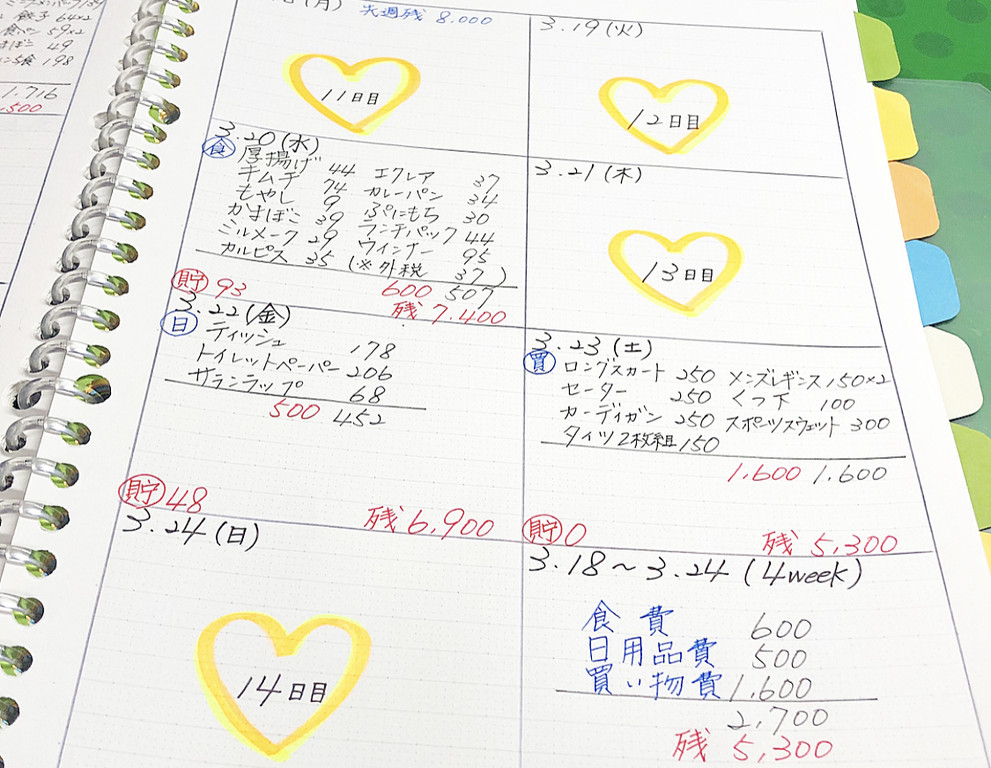 餃子 64×2
食パン 59×2
49
198
1,716
500
(月)
先週残 8,000
11日目
3.19(火)
12日目
3.20(水)
食
厚揚げ 44 エクレア 37
キムチ 74 カレーパン 34
もやし 9 ぷにもち 30
かまぼこ 39 ランチパック 44
ミルメーク 29 ウインナー 95
カルピス 35 (※外税 37)
貯 93 600 507
残 7.400
3.21(木)
13日目
3.22(金)
日
ティッシュ 178
トイレットペーパー 206
サランラップ 68
500 452
貯 48 残 6,900
3.23(土)
買
ロングスカート 250 メンズレギンス 150×2
セーター 250 くつ下 100
カーディガン 250 スポーツスウェット 300
タイツ2枚組 150
1.600 1.600
貯 0 残 5,300
3.24(日)
14日目
3.18〜3.24 (4week)
食費 600
日用品費 500
買い物費 1.600
2,700
残 5,300